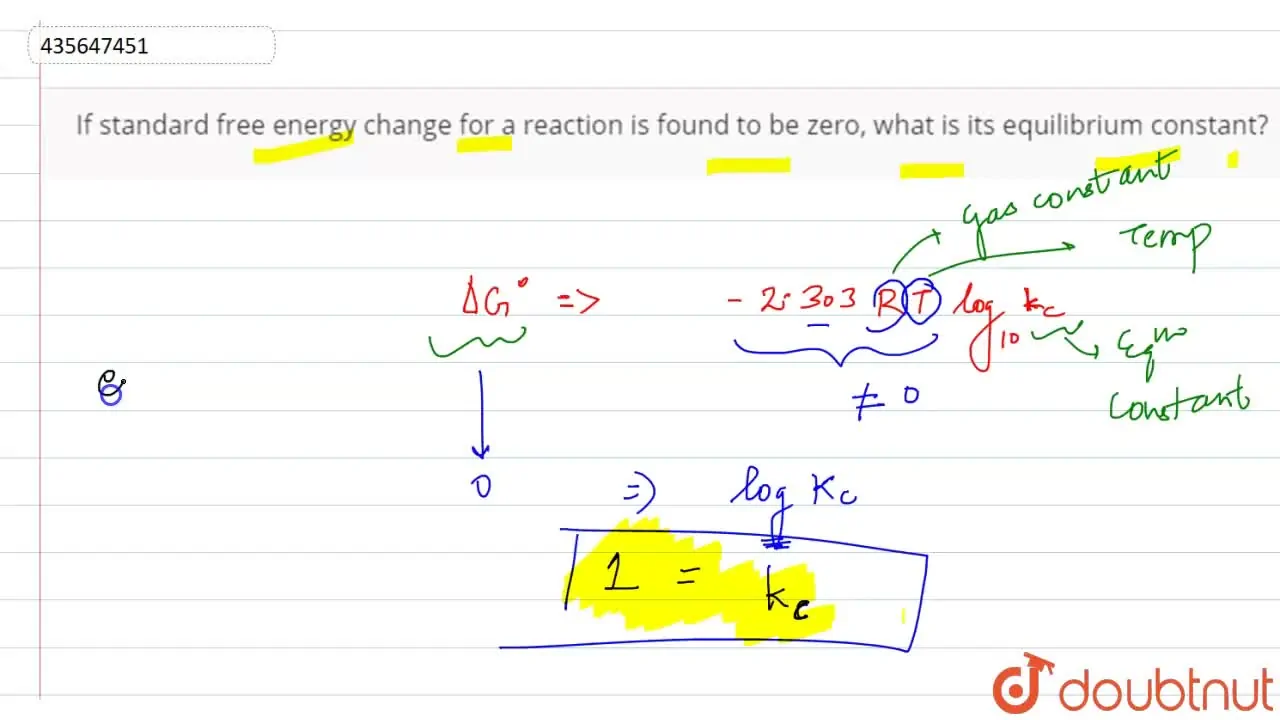 435647451
If standard free energy change for a reaction is found to be zero, what is its equilibrium constant?
gas constant
Temp
ΔG° => - 2.303 RT log₁₀ kc
Eqᵐ
constant
≠ 0
0 => log Kc
1 = kc
doubtnut